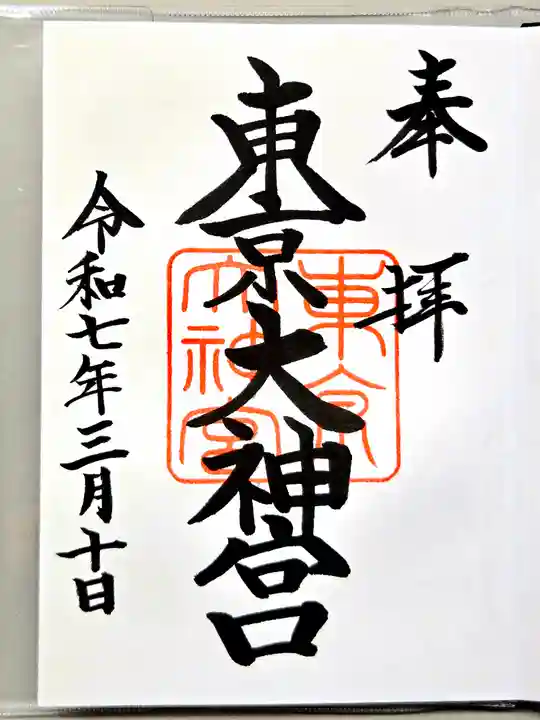 奉拝
東京大神宮
東京
大神宮
令和七年三月十日